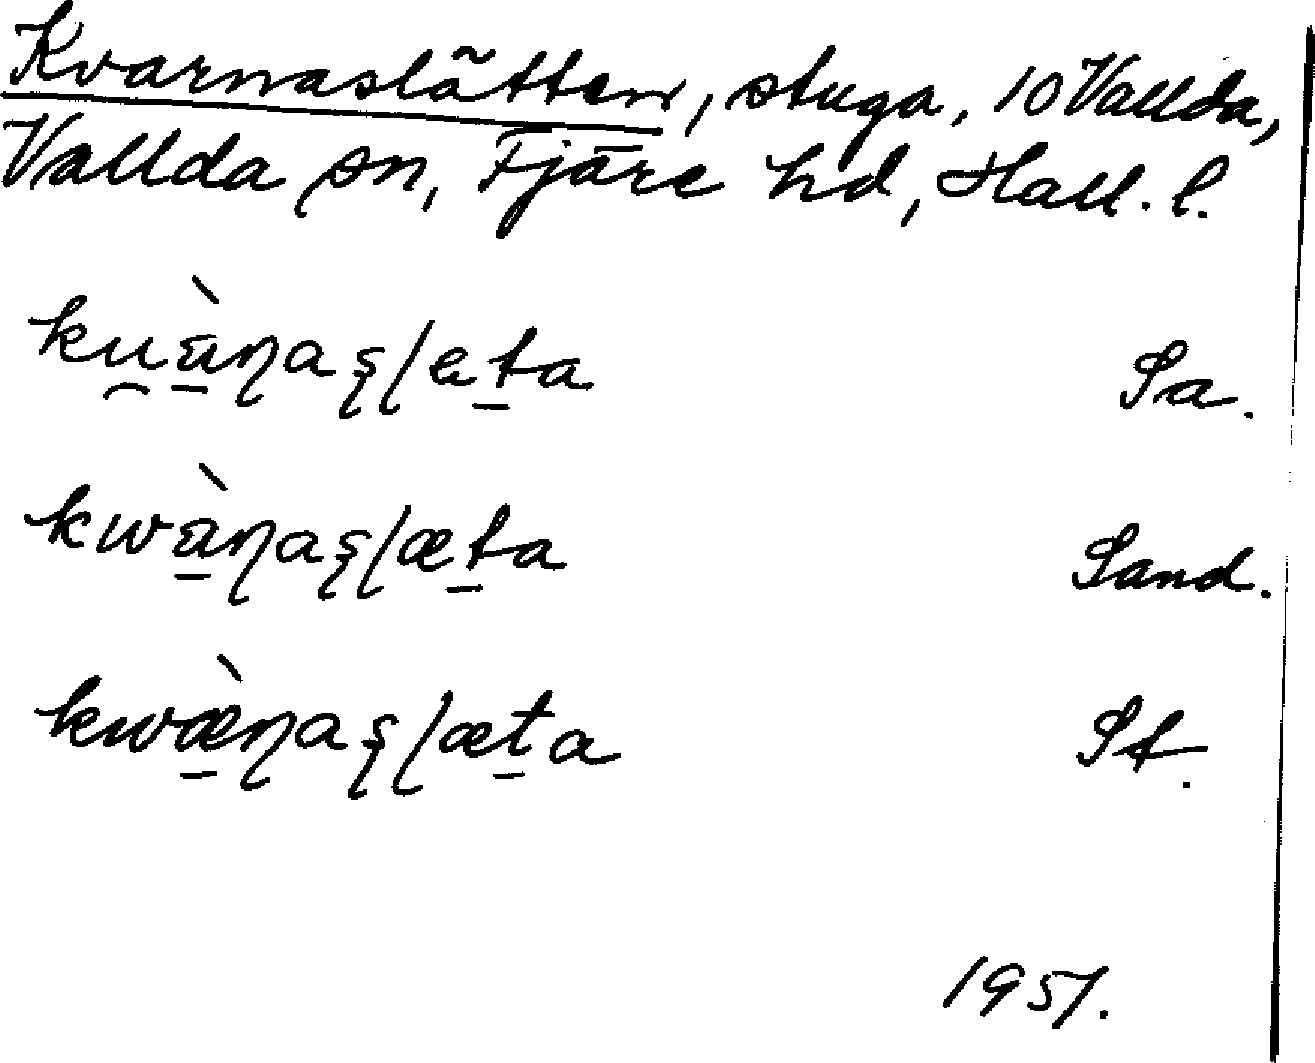 Kvarnaslätten, stuga, 10 Vallda,
Vallda sn, Fjäre hd, Hall. l.
ku̯ā̀ɳaʂɭeta Sa.
kwā̀ɳaʂɭæta Sand.
kwæ̀ɳaʂɭæta St.
1951.